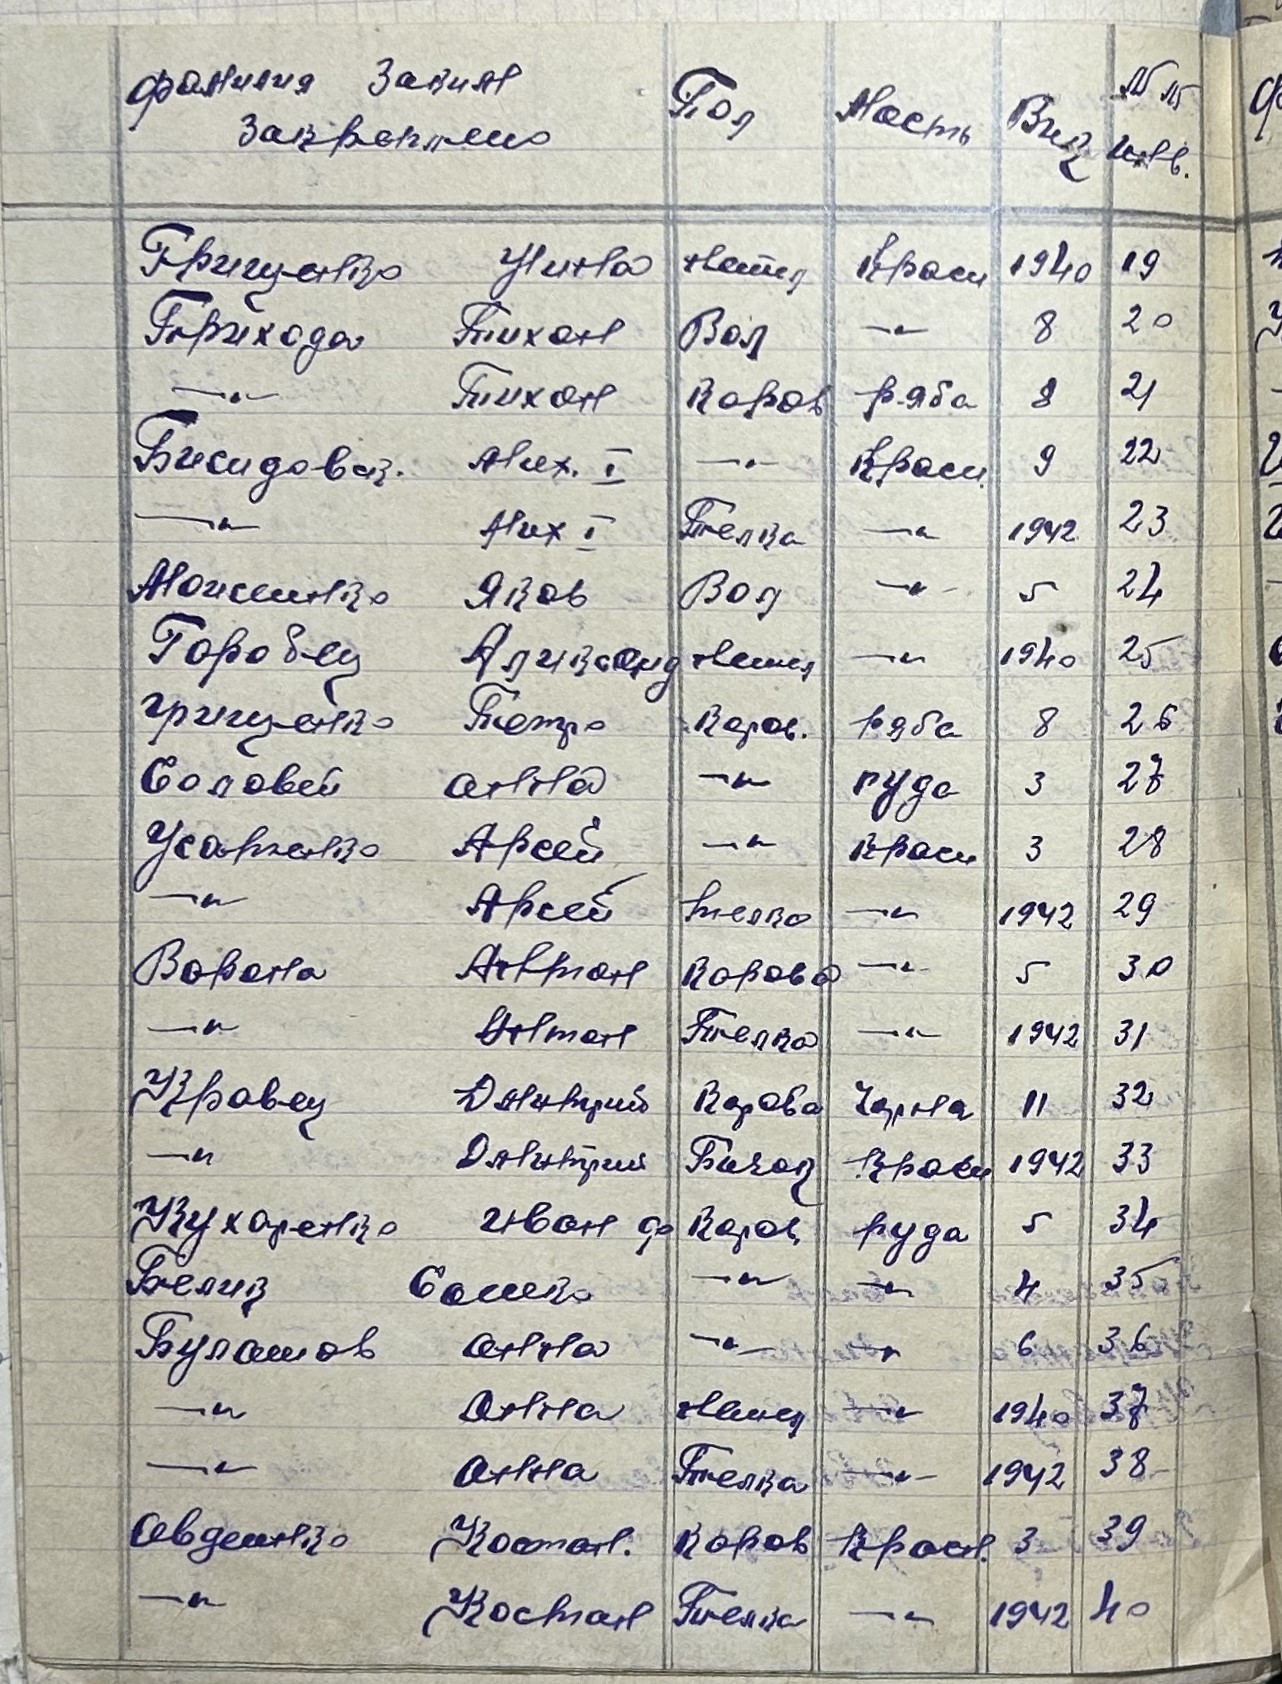 фамилия За ким Пол Масть Вик №№
закреплено инв.
Грищенко Ульяна нетел Красн 1940 19
Прихода Тихон Вол —"— 8 20
—"— Тихон Коров ряба 8 21
Бисидовск. Мих. I —"— Красн. 9 22
—"— Мих I Телка —"— 1942 23
Моисеенко Яков Вол —"— 5 24
Горобец Александ нетел —"— 1940 25
Грищенко Петро Коров. ряба 8 26
Соловей анна —"— руда 3 27
Усаченко Арсей —"— Красн 3 28
—"— Арсей телка —"— 1942 29
Ворона Антон Корова —"— 5 30
—"— Антон Телка —"— 1942 31
Кравец Дмитрий Корова Чорна 11 32
—"— Дмитрий Бичок Красн 1942 33
Кухаренко Иван ф Коров руда 5 34
Белик Сашко —"— —"— 4 35
Булашов анна —"— —"— 6 36
—"— Анна нетел —"— 1940 37
—"— Анна Телка —"— 1942 38
Авдеенко Костан. Коров Красн. 3 39
—"— Костан Телка —"— 1942 40